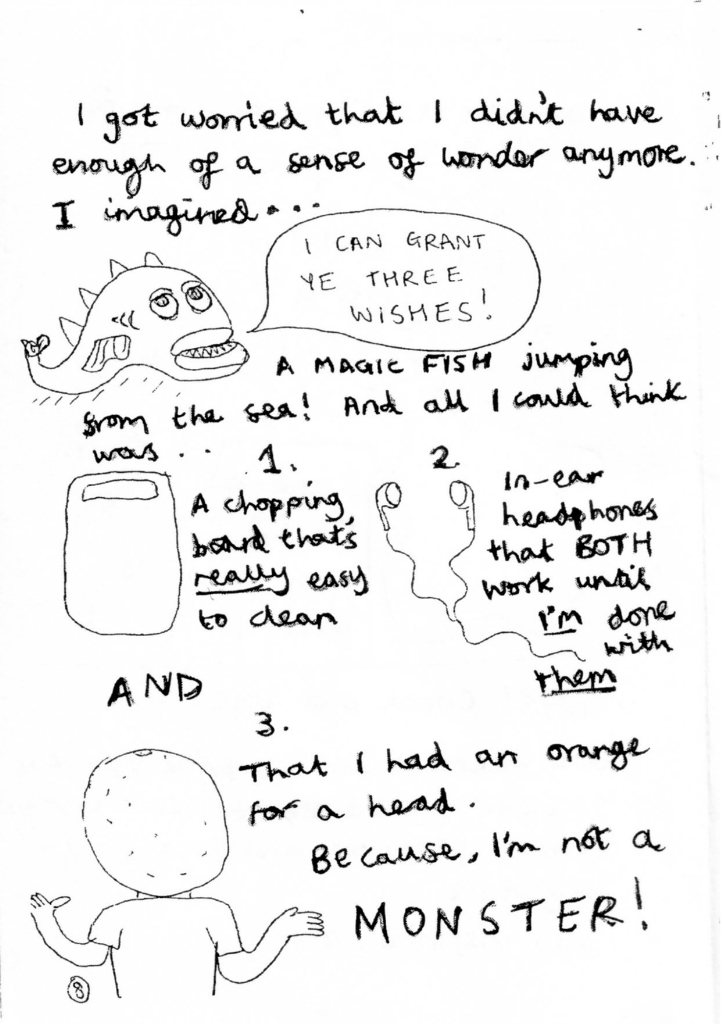 I got worried that I didn't have
enough of a sense of wonder anymore.
I imagined...
I CAN GRANT
YE THREE
WISHES!
A MAGIC FISH jumping
from the sea! And all I could think
was...
1.
A chopping
board that's
really easy
to clean
2.
In-ear
headphones
that BOTH
work until
I'm done
with
them
AND
3.
That I had an orange
for a head.
Because, I'm not a
MONSTER!
8